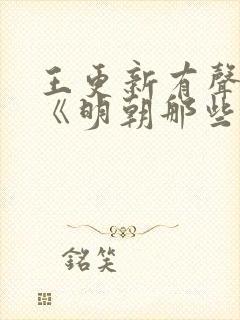 王更新有聲
《明朝那些
銘笑